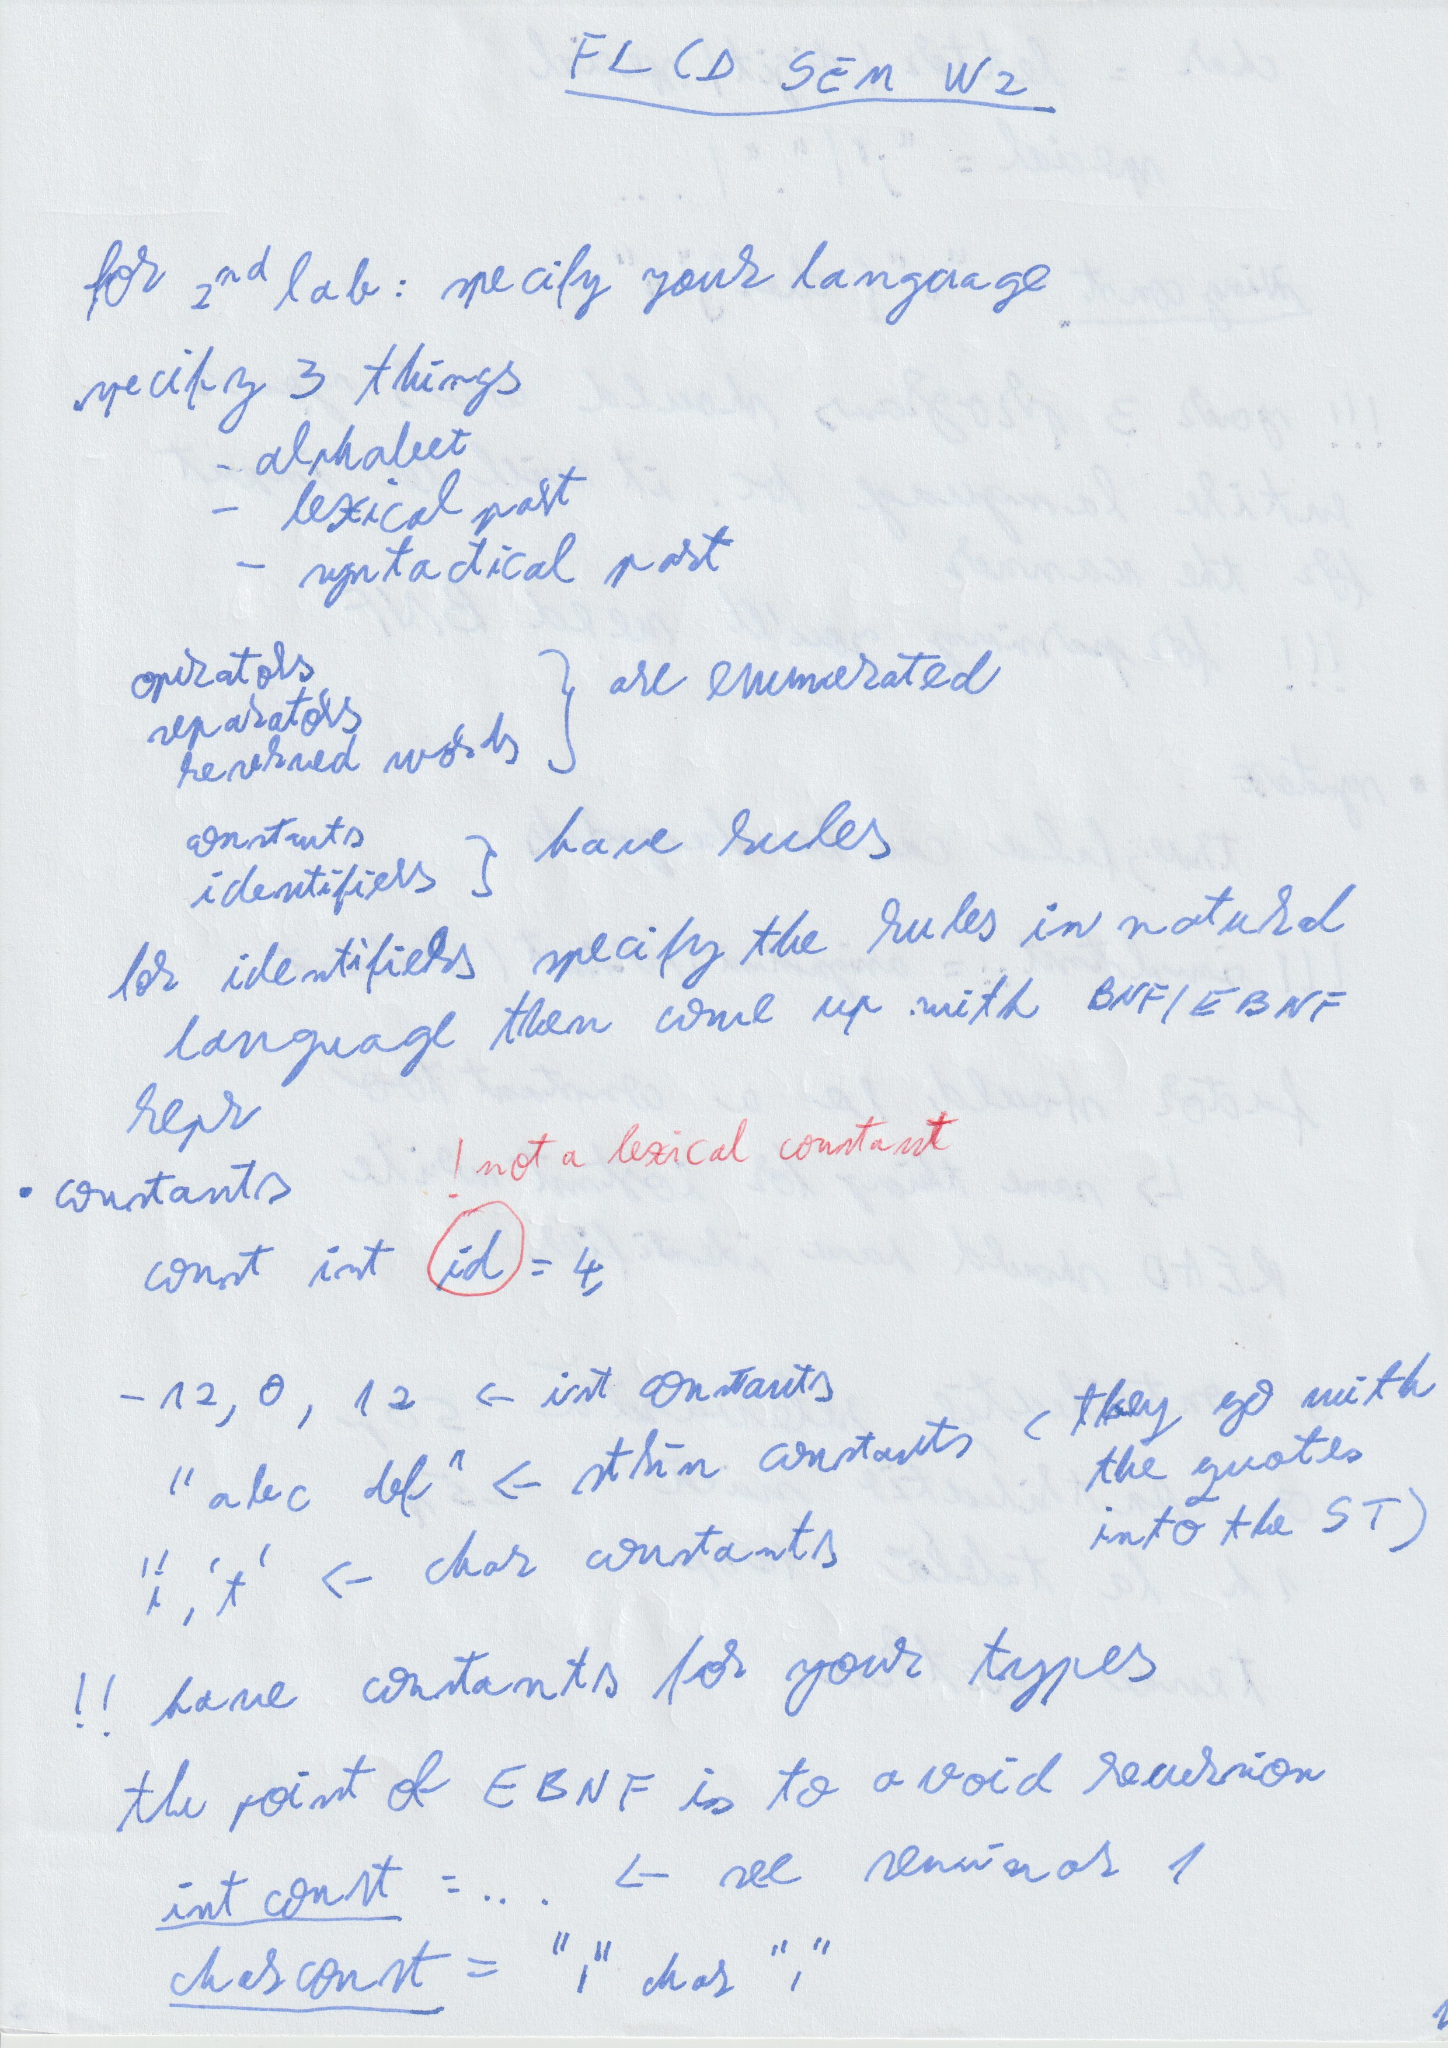 FLCD SEM W2
for 2nd lab: specify your language
specify 3 things
- alphabet
- lexical part
- syntactical part
operators
separators
reserved words } are enumerated
constants
identifiers } have rules
for identifiers specify the rules in natural
language then come up with BNF/EBNF
repr
! not a lexical constant
• constants
const int id = 4;
-12, 0, 12 <- int constants
"abc def" <- strin constants (they go with
the quotes
into the ST)
'i', 't' <- char constants
!! have constants for your types
the point of EBNF is to avoid recursion
int const = ... <- see seminar 1
charconst = "'" char "'"